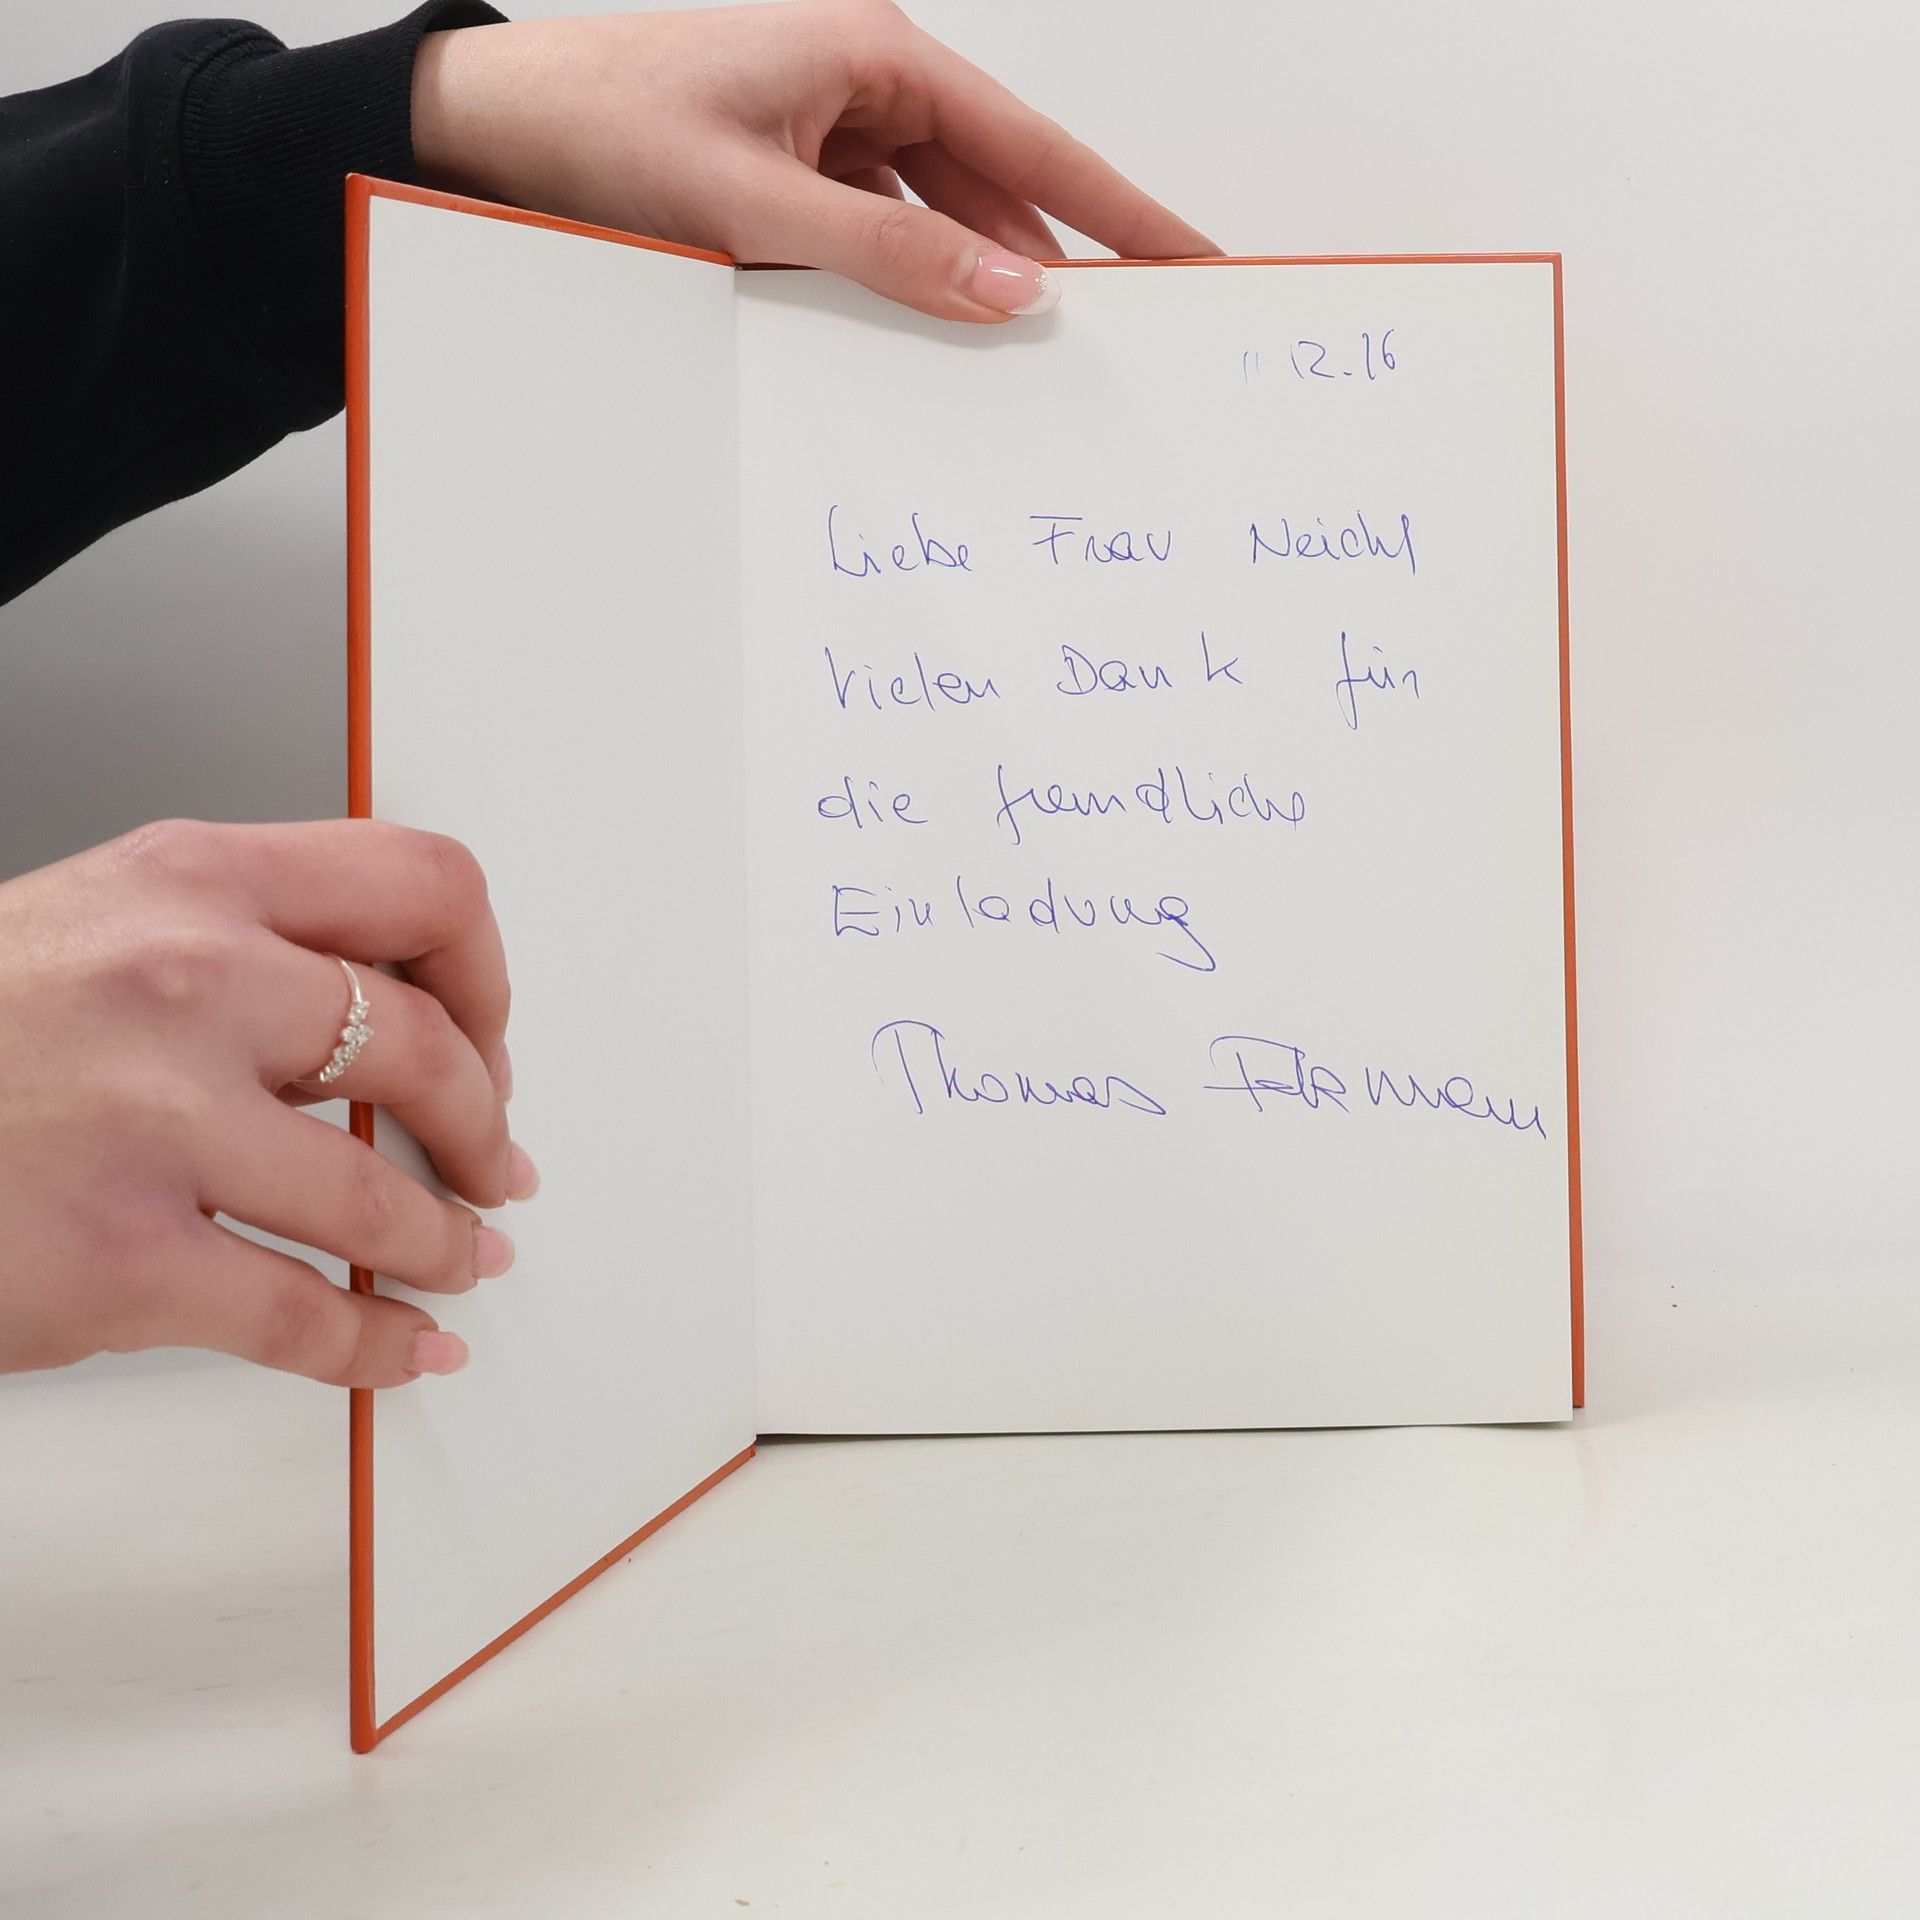 11 12.16
Liebe Frau Neichl
Vielen Dank für
die freundliche
Einladung
Thomas